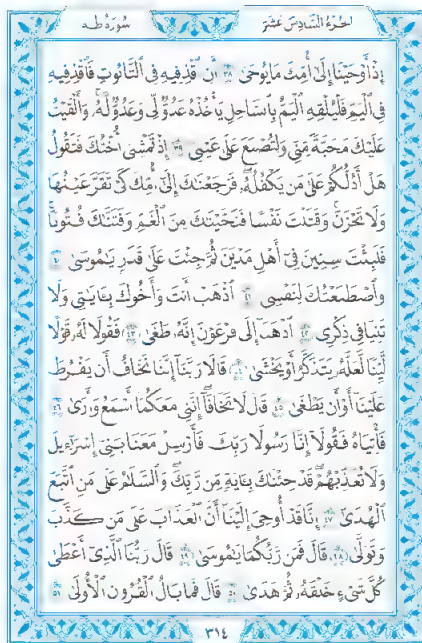 الجزء السادس عشر
سورة طه
إِذْ أَوْحَيْنَا إِلَىٰ أُمِّكَ مَا يُوحَىٰ ٣٨ أَنِ اقْذِفِيهِ فِي التَّابُوتِ فَاقْذِفِيهِ
فِي الْيَمِّ فَلْيُلْقِهِ الْيَمُّ بِالسَّاحِلِ يَأْخُذْهُ عَدُوٌّ لِّي وَعَدُوٌّ لَّهُ ۚ وَأَلْقَيْتُ
عَلَيْكَ مَحَبَّةً مِّنِّي وَلِتُصْنَعَ عَلَىٰ عَيْنِي ٣٩ إِذْ تَمْشِي أُخْتُكَ فَتَقُولُ
هَلْ أَدُلُّكُمْ عَلَىٰ مَن يَكْفُلُهُ ۖ فَرَجَعْنَاكَ إِلَىٰ أُمِّكَ كَيْ تَقَرَّ عَيْنُهَا
وَلَا تَحْزَنَ ۚ وَقَتَلْتَ نَفْسًا فَنَجَّيْنَاكَ مِنَ الْغَمِّ وَفَتَنَّاكَ فُتُونًا ۚ
فَلَبِثْتَ سِنِينَ فِي أَهْلِ مَدْيَنَ ثُمَّ جِئْتَ عَلَىٰ قَدَرٍ يَا مُوسَىٰ ٤٠
وَاصْطَنَعْتُكَ لِنَفْسِي ٤١ اذْهَبْ أَنتَ وَأَخُوكَ بِآيَاتِي وَلَا
تَنِيَا فِي ذِكْرِي ٤٢ اذْهَبَا إِلَىٰ فِرْعَوْنَ إِنَّهُ طَغَىٰ ٤٣ فَقُولَا لَهُ قَوْلًا
لَّيِّنًا لَّعَلَّهُ يَتَذَكَّرُ أَوْ يَخْشَىٰ ٤٤ قَالَا رَبَّنَا إِنَّنَا نَخَافُ أَن يَفْرُطَ
عَلَيْنَا أَوْ أَن يَطْغَىٰ ٤٥ قَالَ لَا تَخَافَا ۖ إِنَّنِي مَعَكُمَا أَسْمَعُ وَأَرَىٰ ٤٦
فَأْتِيَاهُ فَقُولَا إِنَّا رَسُولَا رَبِّكَ فَأَرْسِلْ مَعَنَا بَنِي إِسْرَائِيلَ
وَلَا تُعَذِّبْهُمْ ۖ قَدْ جِئْنَاكَ بِآيَةٍ مِّن رَّبِّكَ ۖ وَالسَّلَامُ عَلَىٰ مَنِ اتَّبَعَ
الْهُدَىٰ ٤٧ إِنَّا قَدْ أُوحِيَ إِلَيْنَا أَنَّ الْعَذَابَ عَلَىٰ مَن كَذَّبَ
وَتَوَلَّىٰ ٤٨ قَالَ فَمَن رَّبُّكُمَا يَا مُوسَىٰ ٤٩ قَالَ رَبُّنَا الَّذِي أَعْطَىٰ
كُلَّ شَيْءٍ خَلْقَهُ ثُمَّ هَدَىٰ ٥٠ قَالَ فَمَا بَالُ الْقُرُونِ الْأُولَىٰ ٥١
٣١٤